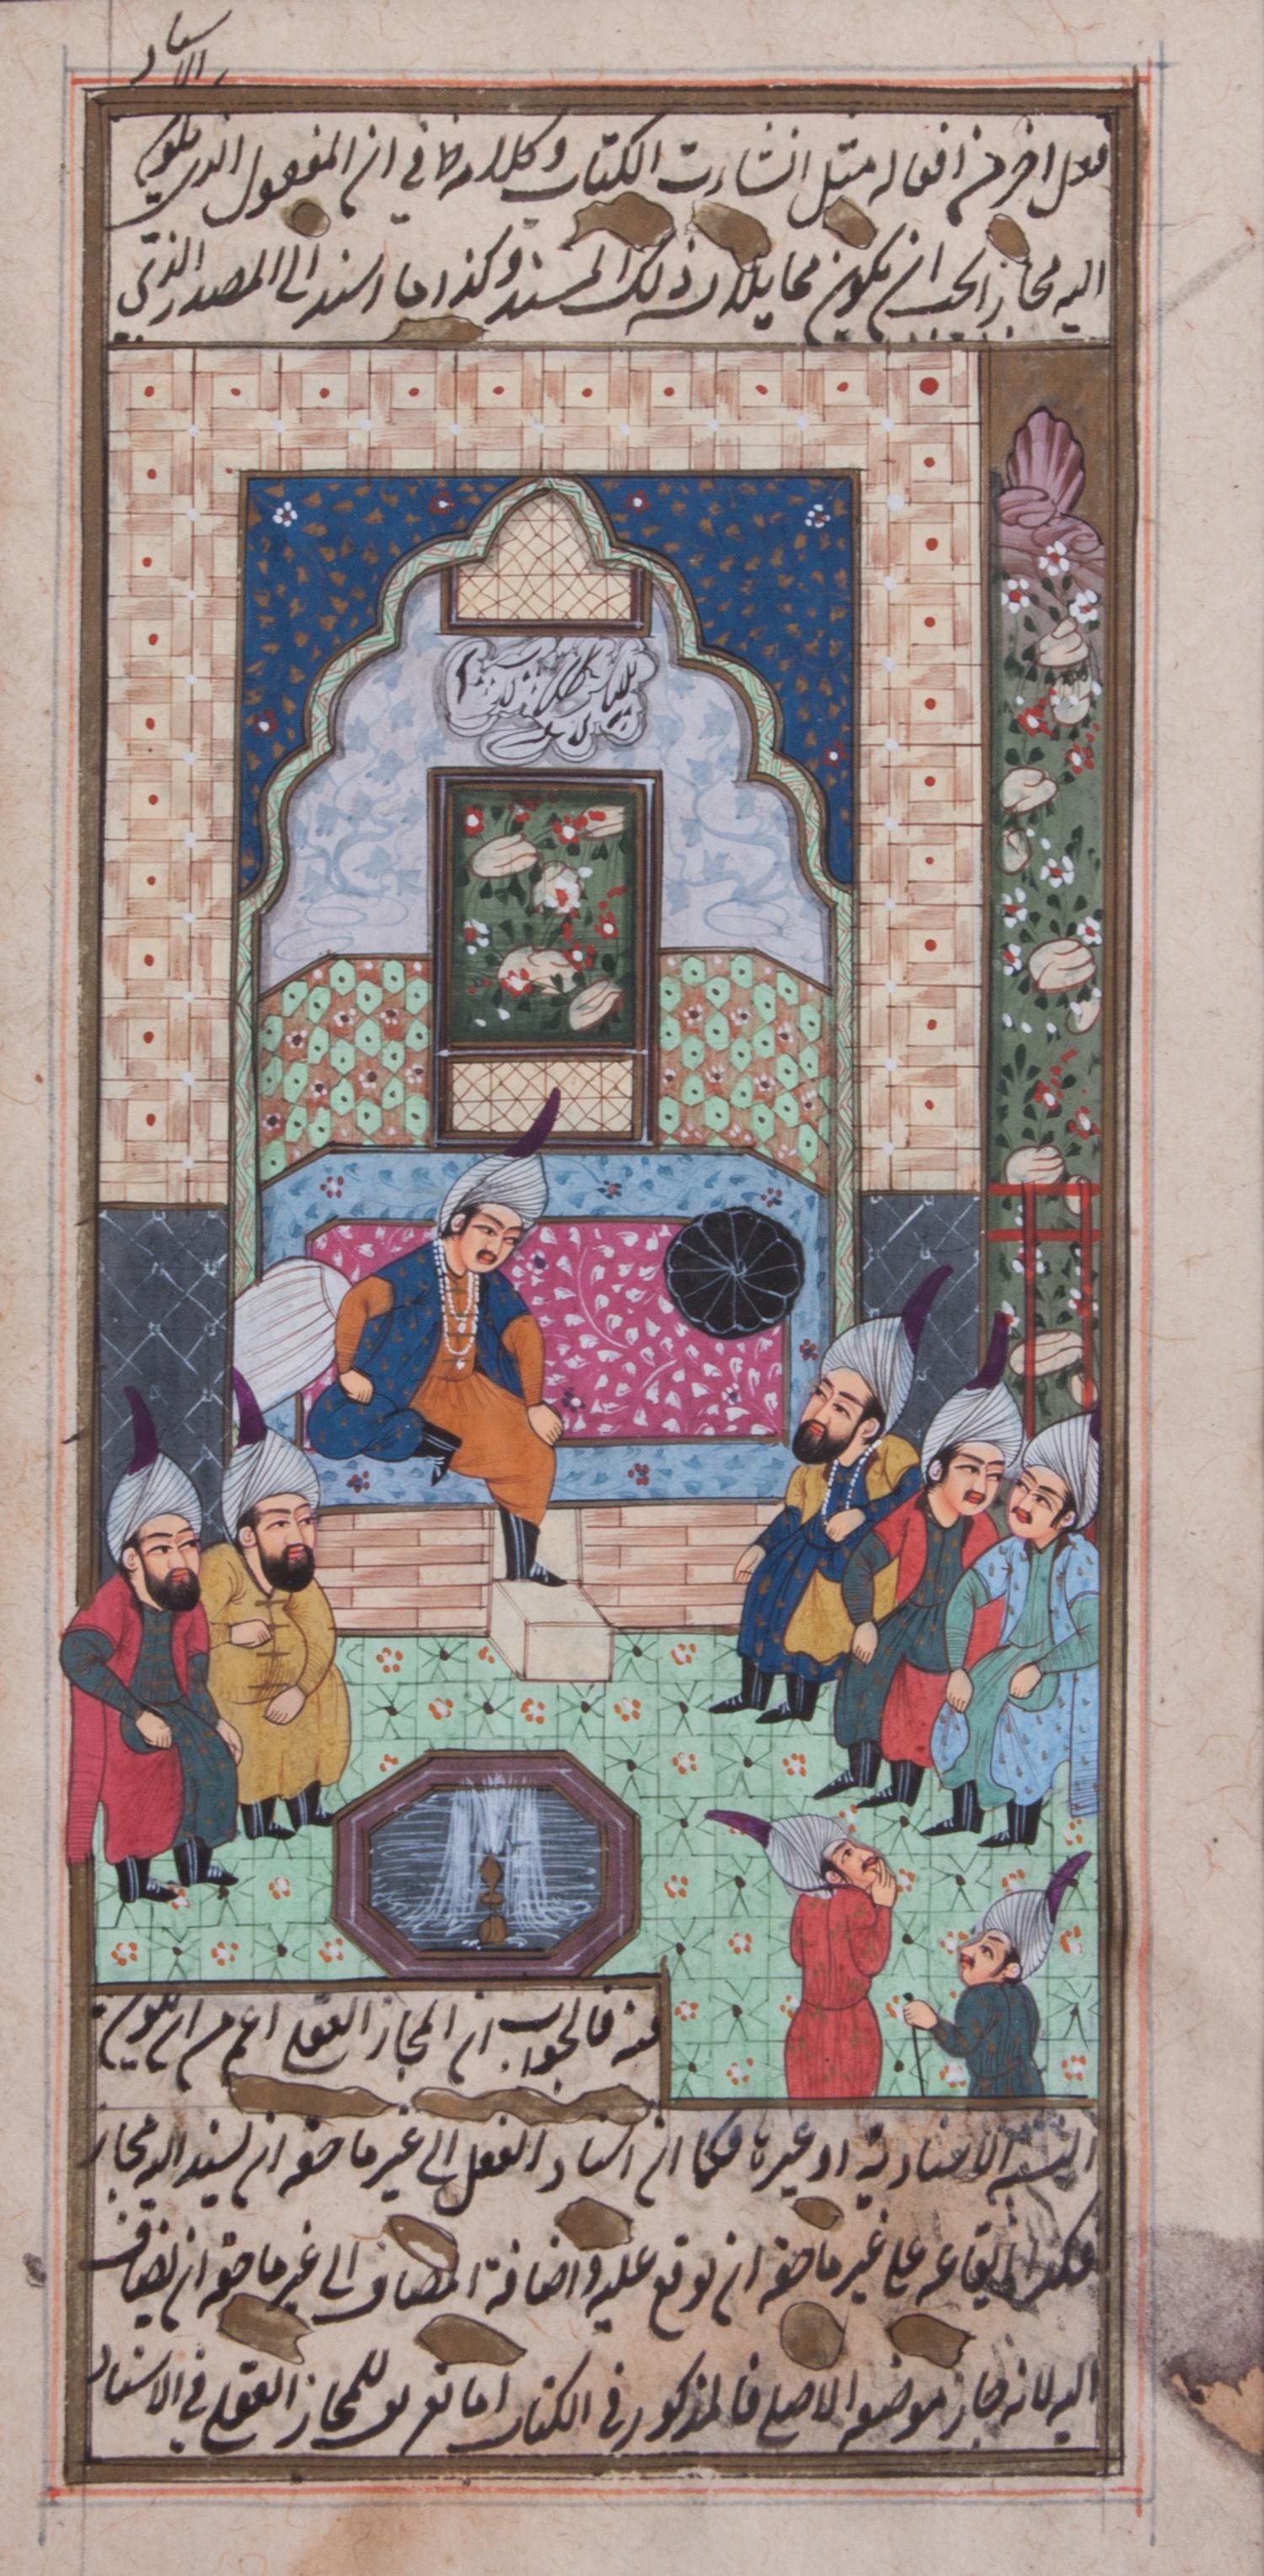 الاسناد
اخر من افعاله مثل انشارت الكتاب وكلامه ظا في ان المفعول الذي يكون
اليه مجاز الحب ان يكون مما يلابس ذلك المسند وكذا ما اسند الى المصدر الذي
عنه فالجواب ان المجاز العقلي اعم من ان يكون
النسبة الاسنادية او غيره فكما ان اسناد الفعل الى غير ما حقه ان يسند اليه مجاز
فكذا ايقاعه على غير ما حقه ان يوقع عليه واضافة المضاف الى غير ما حقه ان يضاف
اليه لانه جاز موضعه الاصلي فالمذكور في الكتاب اما تعريف للمجاز العقلي في الاسناد